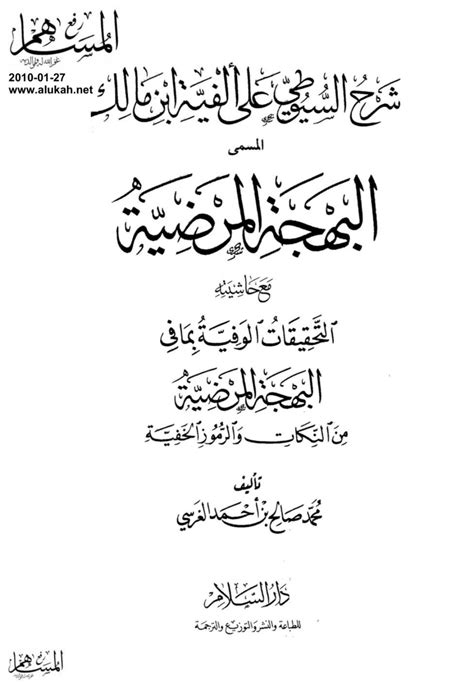 رفع
المساهم
غفر الله له ولوالديه
2010-01-27
www.alukah.net
شرح السيوطي على ألفية ابن مالك
المسمى
البهجة المرضية
مع حاشيته
التحقيقات الوفية بما في
البهجة المرضية
من النكات والرموز الخفية
تأليف
محمد صالح بن أحمد الغرسي
دار السلام
للطباعة والنشر والتوزيع والترجمة
رفع
المساهم